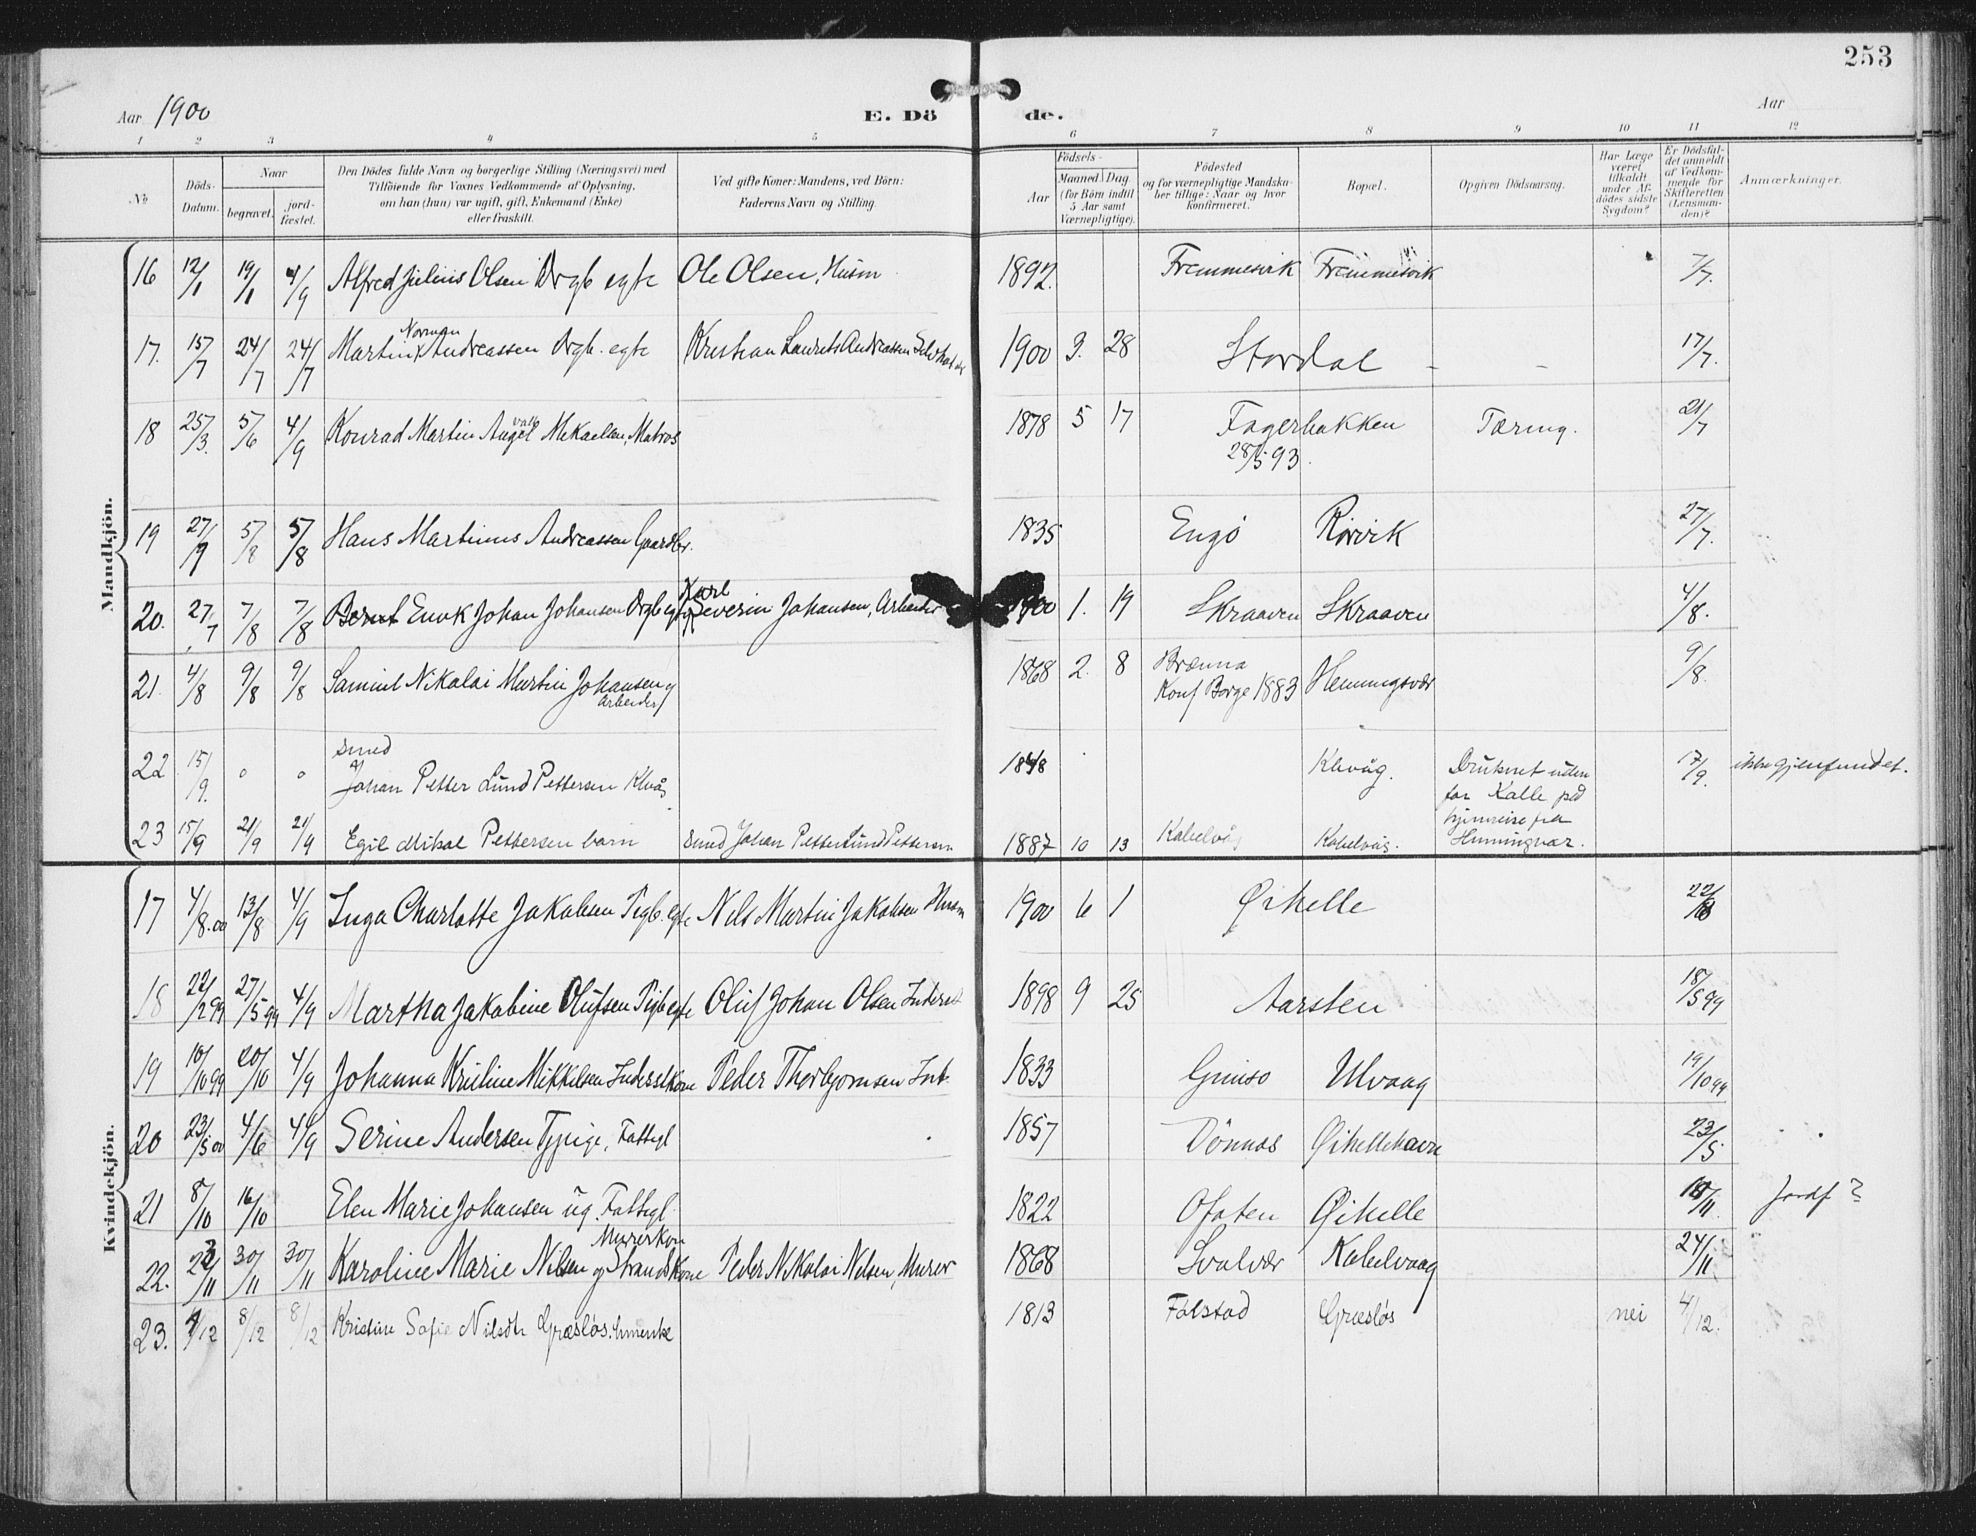 253
Aar 1900
E. Dö de.
Aar
1 2 3 4 5 6 7 8 9 10 11 12
No
Döds-
Datum.
Naar
begravet.
jord-
fæstet.
Den Dödes fulde Navn og borgerlige Stilling (Næringsvei) med
Tilföiende for Voxnes Vedkommende af Oplysning,
om han (hun) var ugift, gift, Enkemand (Enke)
eller fraskilt.
Ved gifte Koner: Mandens, ved Börn:
Faderens Navn og Stilling
Födsels-
Aar
Maaned
Dag
(for Börn indtil
5 Aar samt
Værnepligtige).
Födested
og for værnepligtige Mandska-
ber tillige: Naar og hvor
konfirmeret.
Bopæl.
Opgiven Dödsaarsag.
Har Læge
været
tilkaldt
under Af-
dödes sidste
Sygdom?
Er Dödsfal-
det anmeldt
af Vedkom-
mende for
Skifteretten
(Lensman-
den)?
Anmærkninger.
Mandkjön.
16 12/1 19/1 4/9 Alfred Julius Olsen Drgb egte Ole Olsen, Husm 1892. Fremmesvik Fremmesvik 7/7.
Norman
17. 15/7 24/7 24/7 Martin Andreassen Drgb. egte Kristian Laurits Andreassen 1900 3. 28 Stordal - - 17/7.
18 25/3. 5/6 4/9 Konrad Martin Angel Mikaelsen, Matros 1878 5 17 Fagerbakken Tæring. 21/7
28/5 93.
19 27/7 5/8 5/8 Hans Martinus Andreassen Gaardbr. 1835 Engö Rörvik 27/7.
Karl
20. 27/7 7/8 7/8 Bernt Johan Johansen Drgb egte Severin Johansen, Arbeider 1900 1. 19 Skraaven Skraaven 4/8.
21. 4/8 9/8 9/8 Samuel Nikolai Martin Johansen g 1868 2. 8 Brænna Hemmingsvær 9/8.
Arbeider
Konf Borge 1883
smed
22 15/9. o o Johan Petter Lund Pettersen Kbvåg 1848 Kbvåg. Druknet uden 17/9. ikke gjenfundet.
for Kalle på
hjemreise fra
23 15/9 21/9 21/9 Egil Mikal Pettersen barn smed Johan Petter Lund Pettersen 1887 10 13 Kabelvåg Kabelvåg. Henningvær.
Kvindekjön.
17 4/8.00 13/8 4/9 Inga Charlotte Jakobsen Pigb. egte Nils Martin Jakobsen Husm 1900 6 1 Öihelle
18 22/2 99 27/5 99 4/9 Martha Jakobine Olufsen Pigb egte Oluf Johan Olsen Inderst 1898 9 25 Aarsten 18/5 99
19 10/10 99 20/10 4/9 Johanna Kristine Mikkelsen Inderstkone Peder Thorbjornsen Ind. 1833 Gimso Ulvaag 19/10 99
20 23/5 00 4/6 4/9 Serine Andersen Tjpige, Fattigl 1857 Dönnas Öihellehavn 23/5
21 8/10 16/10 Elen Marie Johansen ug. Fattigl. 1822 Ofoten Öihelle Jordf ?
Murerkon
22. 30/11 30/11 Karoline Marie Nilsen g Strandkone Peder Nikolai Nilsen, Murer 1868 Svolvær Kabelvaag 24/11.
23. 4/12 8/12 8/12 Kristine Sofie Nilsdtr Græsløs. 1813 Fålstad Græsløs nei 4/12.